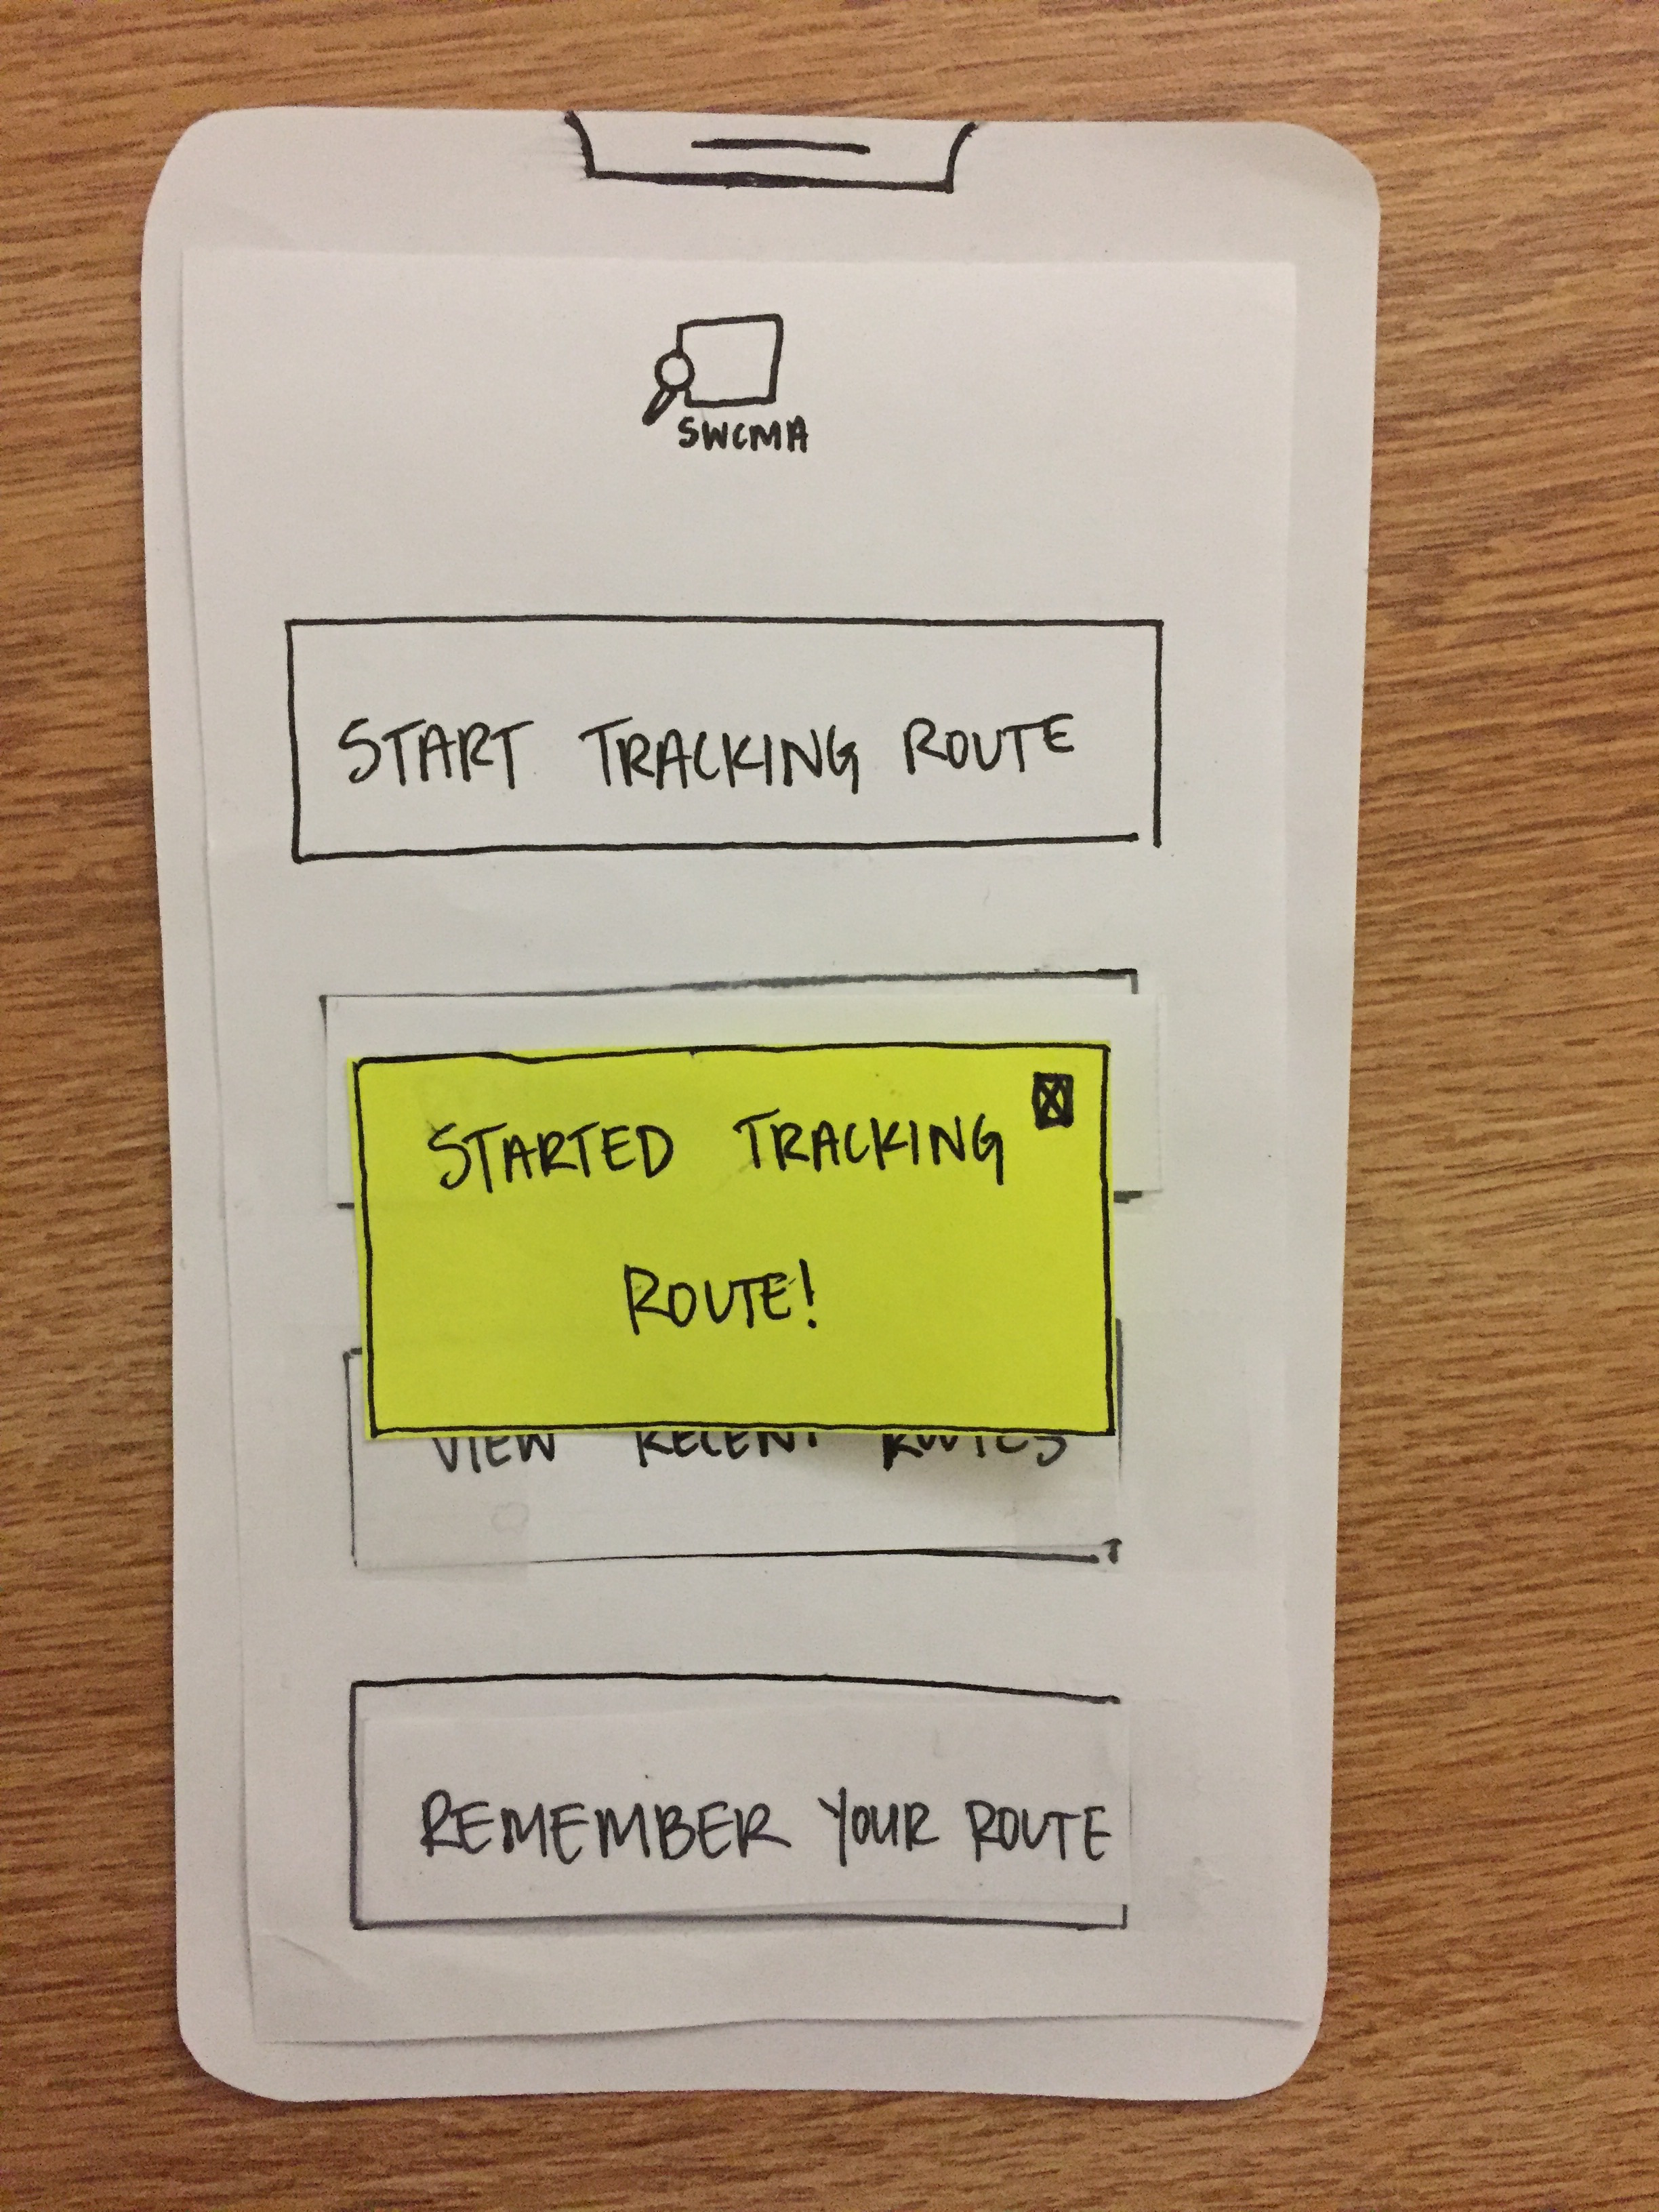 SWCMA
START TRACKING ROUTE
STARTED TRACKING
ROUTE!
VIEW RECENT ROUTES
REMEMBER YOUR ROUTE